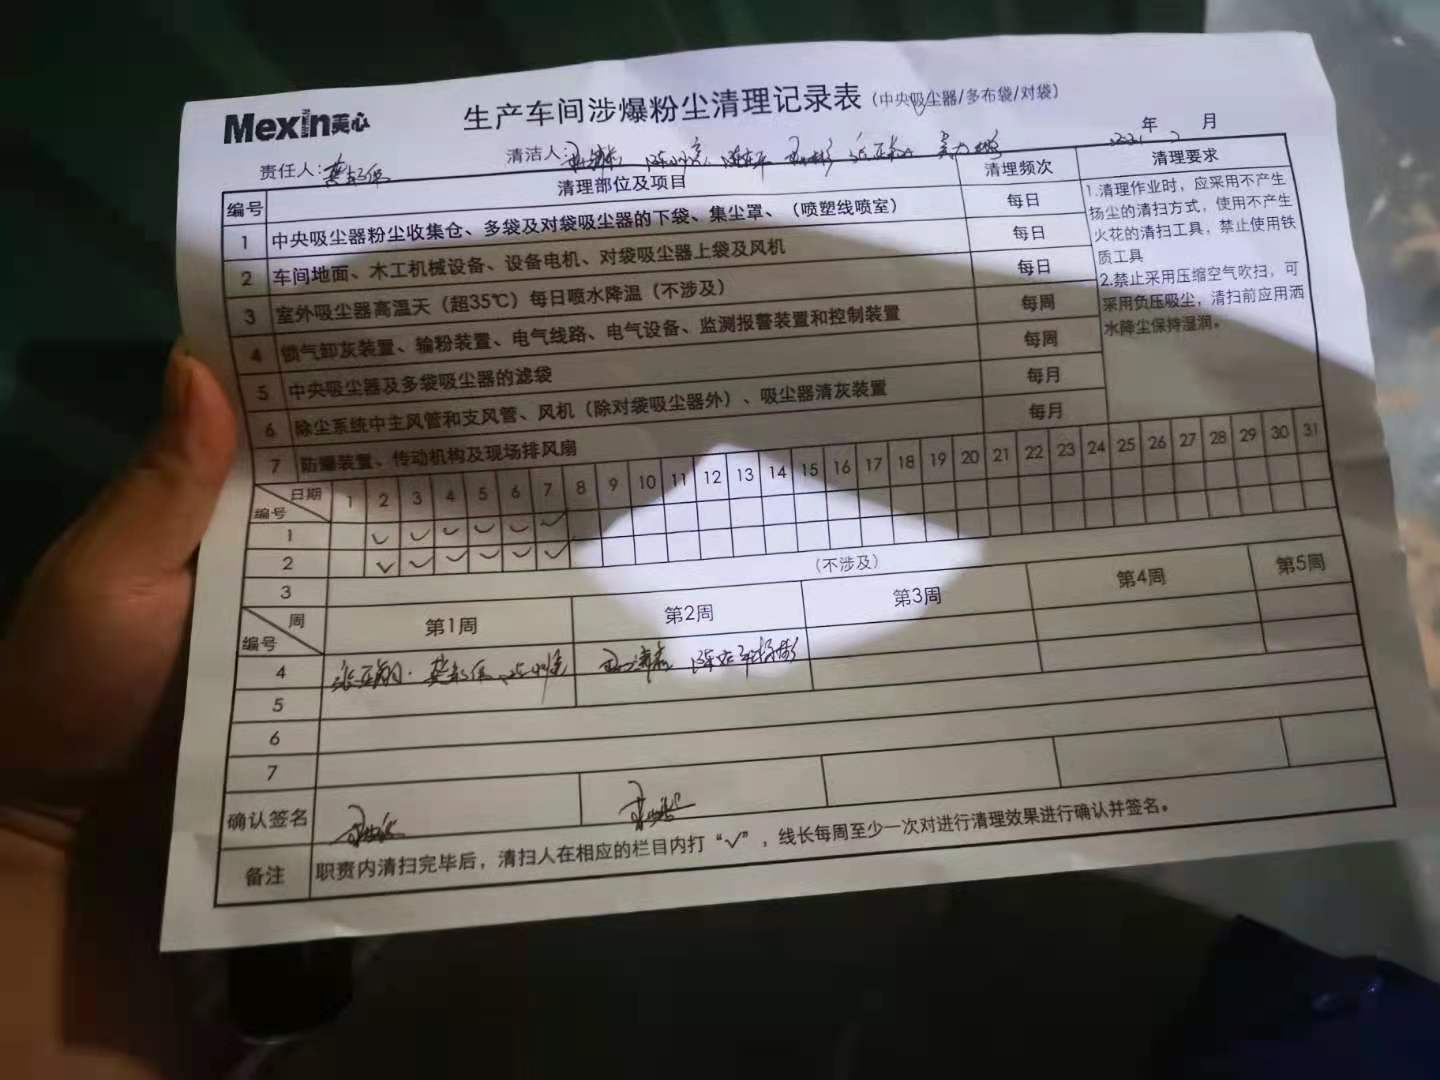 Mexin美心 生产车间涉爆粉尘清理记录表(中央吸尘器/多布袋/对袋)
责任人: 清洁人: 年 月
编号 清理部位及项目 清理频次 清理要求
1 中央吸尘器粉尘收集仓、多袋及对袋吸尘器的下袋、集尘罩、(喷塑线喷室) 每日
2 车间地面、木工机械设备、设备电机、对袋吸尘器上袋及风机 每日
3 室外吸尘器高温天(超35℃)每日喷水降温(不涉及) 每日
4 锁气卸灰装置、输粉装置、电气线路、电气设备、监测报警装置和控制装置 每周
5 中央吸尘器及多袋吸尘器的滤袋 每周
6 除尘系统中主风管和支风管、风机(除对袋吸尘器外)、吸尘器清灰装置 每月
7 防爆装置、传动机构及现场排风扇 每月
1.清理作业时,应采用不产生
扬尘的清扫方式,使用不产生
火花的清扫工具,禁止使用铁
质工具
2.禁止采用压缩空气吹扫,可
采用负压吸尘,清扫前应用洒
水降尘保持湿润。
日期 编号 1 2 3 4 5 6 7 8 9 10 11 12 13 14 15 16 17 18 19 20 21 22 23 24 25 26 27 28 29 30 31
1 ✓ ✓ ✓ ✓ ✓ ✓
2 ✓ ✓ ✓ ✓ ✓ ✓
3 (不涉及)
周 编号 第1周 第2周 第3周 第4周 第5周
4
5
6
7
确认签名
备注 职责内清扫完毕后,清扫人在相应的栏目内打“√”,线长每周至少一次对进行清理效果进行确认并签名。